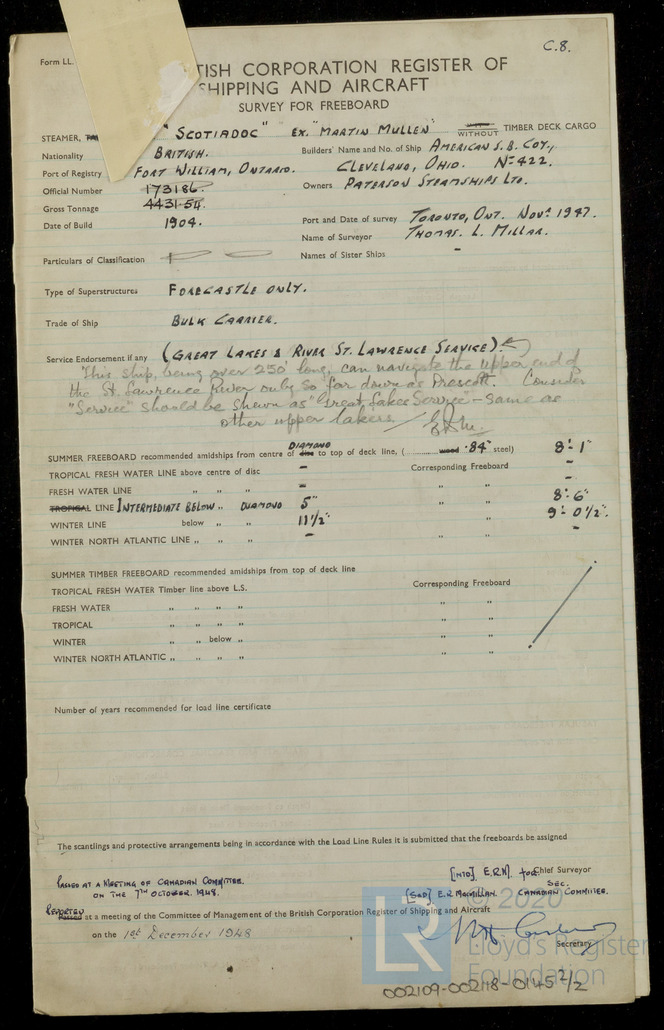 C.8.
Form LL.
TISH CORPORATION REGISTER OF
SHIPPING AND AIRCRAFT
SURVEY FOR FREEBOARD
STEAMER, "SCOTIADOC" EX "MARTIN MULLEN" WITHOUT TIMBER DECK CARGO
Nationality BRITISH. Builders' Name and No. of Ship AMERICAN S.B. COY.,
Port of Registry FORT WILLIAM, ONTARIO. CLEVELAND, OHIO. No 422.
Official Number 173186. Owners PATERSON STEAMSHIPS LTD.
Gross Tonnage 4431.54.
Date of Build 1904. Port and Date of survey TORONTO, ONT. NOV. 1947.
Name of Surveyor THOMAS. L. MILLAR.
Particulars of Classification Names of Sister Ships -
Type of Superstructures FORECASTLE ONLY.
Trade of Ship BULK CARRIER.
Service Endorsement if any (GREAT LAKES & RIVER ST. LAWRENCE SERVICE)
This ship, being over 250' long, can navigate the upper end of
the St. Lawrence River only so far down as Prescott. Consider
"Service" should be shewn as "Great Lakes Service" - same as
other upper lakers.
SUMMER FREEBOARD recommended amidships from centre of disc DIAMOND to top of deck line, (........wood .84" steel) 8'-1"
TROPICAL FRESH WATER LINE above centre of disc - Corresponding Freeboard -
FRESH WATER LINE " " " - " " -
TROPICAL LINE INTERMEDIATE BELOW " DIAMOND 5" " " 8'-6"
WINTER LINE below " " 11½" " 9'-0½".
WINTER NORTH ATLANTIC LINE " " " - " " -
SUMMER TIMBER FREEBOARD recommended amidships from top of deck line
TROPICAL FRESH WATER Timber line above L.S. Corresponding Freeboard
FRESH WATER " " " " " "
TROPICAL " " " " " "
WINTER " " below " " "
WINTER NORTH ATLANTIC " " " " " "
Number of years recommended for load line certificate
The scantlings and protective arrangements being in accordance with the Load Line Rules it is submitted that the freeboards be assigned
[INTD]. E.R.M. for Chief Surveyor
PASSED AT A MEETING OF CANADIAN COMMITTEE. SEC.
ON THE 7TH OCTOBER. 1948. [SGD] E.R. MACMILLAN. CANADIAN COMMITTEE.
REPORTED Passed at a meeting of the Committee of Management of the British Corporation Register of Shipping and Aircraft
on the 1st December 1948
Secretary
© 2020
LR
Lloyd's Register
Foundation
002109-002118-0145 2/2